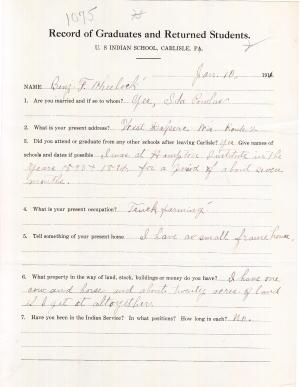 1075
Record of Graduates and Returned Students.
U. S INDIAN SCHOOL, CARLISLE, PA.
Jan. 10, 191
NAME Benj. F. Wheelock
1. Are you married and if so to whom? Yes,
2. What is your present address? West Depere, Wis. Route
3. Did you attend or graduate from any other schools after leaving Carlisle? Yes Give names of
schools and dates if possible I was at Hampton Institute in the
years 1893 & 1894, for a period of about seven
months.
4. What is your present occupation? Truck farming
5. Tell something of your present home I have a small frame house.
6. What property in the way of land, stock, buildings or money do you have? I have one
cow and horse and about twenty acres of land
as I get it altogether.
7. Have you been in the Indian Service? In what positions? How long in each? No.